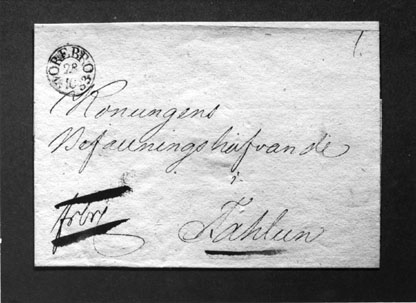 ÖREBRO
28
10
Konungens
Befallningshafvande
i
Fahlun